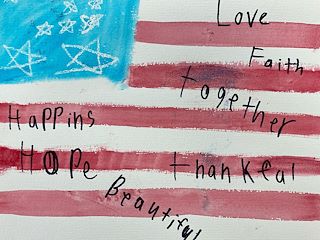 Love
Faith
together
Happins
Hope
thankfal
Beautiful